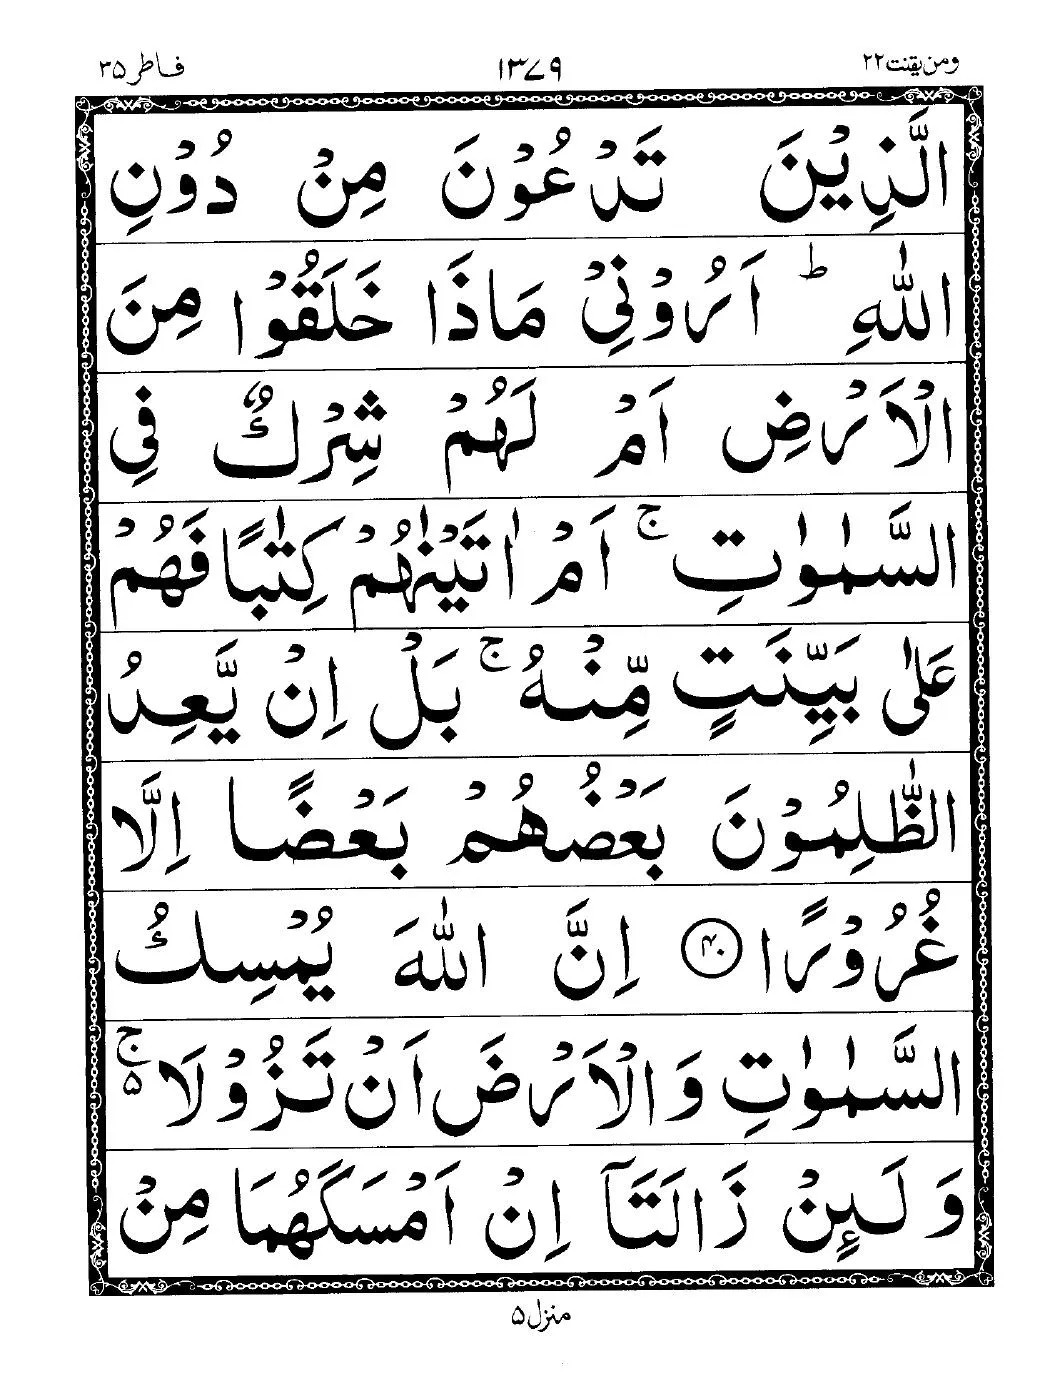 ومن یقنت ۲۲ ۱۳۷۹ فاطر ۳۵
الَّذِیْنَ تَدْعُوْنَ مِنْ دُوْنِ
اللّٰهِ ؕ اَرُوْنِیْ مَاذَا خَلَقُوْا مِنَ
الْاَرْضِ اَمْ لَهُمْ شِرْكٌ فِی
السَّمٰوٰتِ ۚ اَمْ اٰتَیْنٰهُمْ كِتٰبًا فَهُمْ
عَلٰی بَیِّنَتٍ مِّنْهُ ۚ بَلْ اِنْ یَّعِدُ
الظّٰلِمُوْنَ بَعْضُهُمْ بَعْضًا اِلَّا
غُرُوْرًا ﴿۴۰﴾ اِنَّ اللّٰهَ یُمْسِكُ
السَّمٰوٰتِ وَالْاَرْضَ اَنْ تَزُوْلَا ۚ۵
وَلَىِٕنْ زَالَتَاۤ اِنْ اَمْسَكَهُمَا مِنْ
منزل ۵